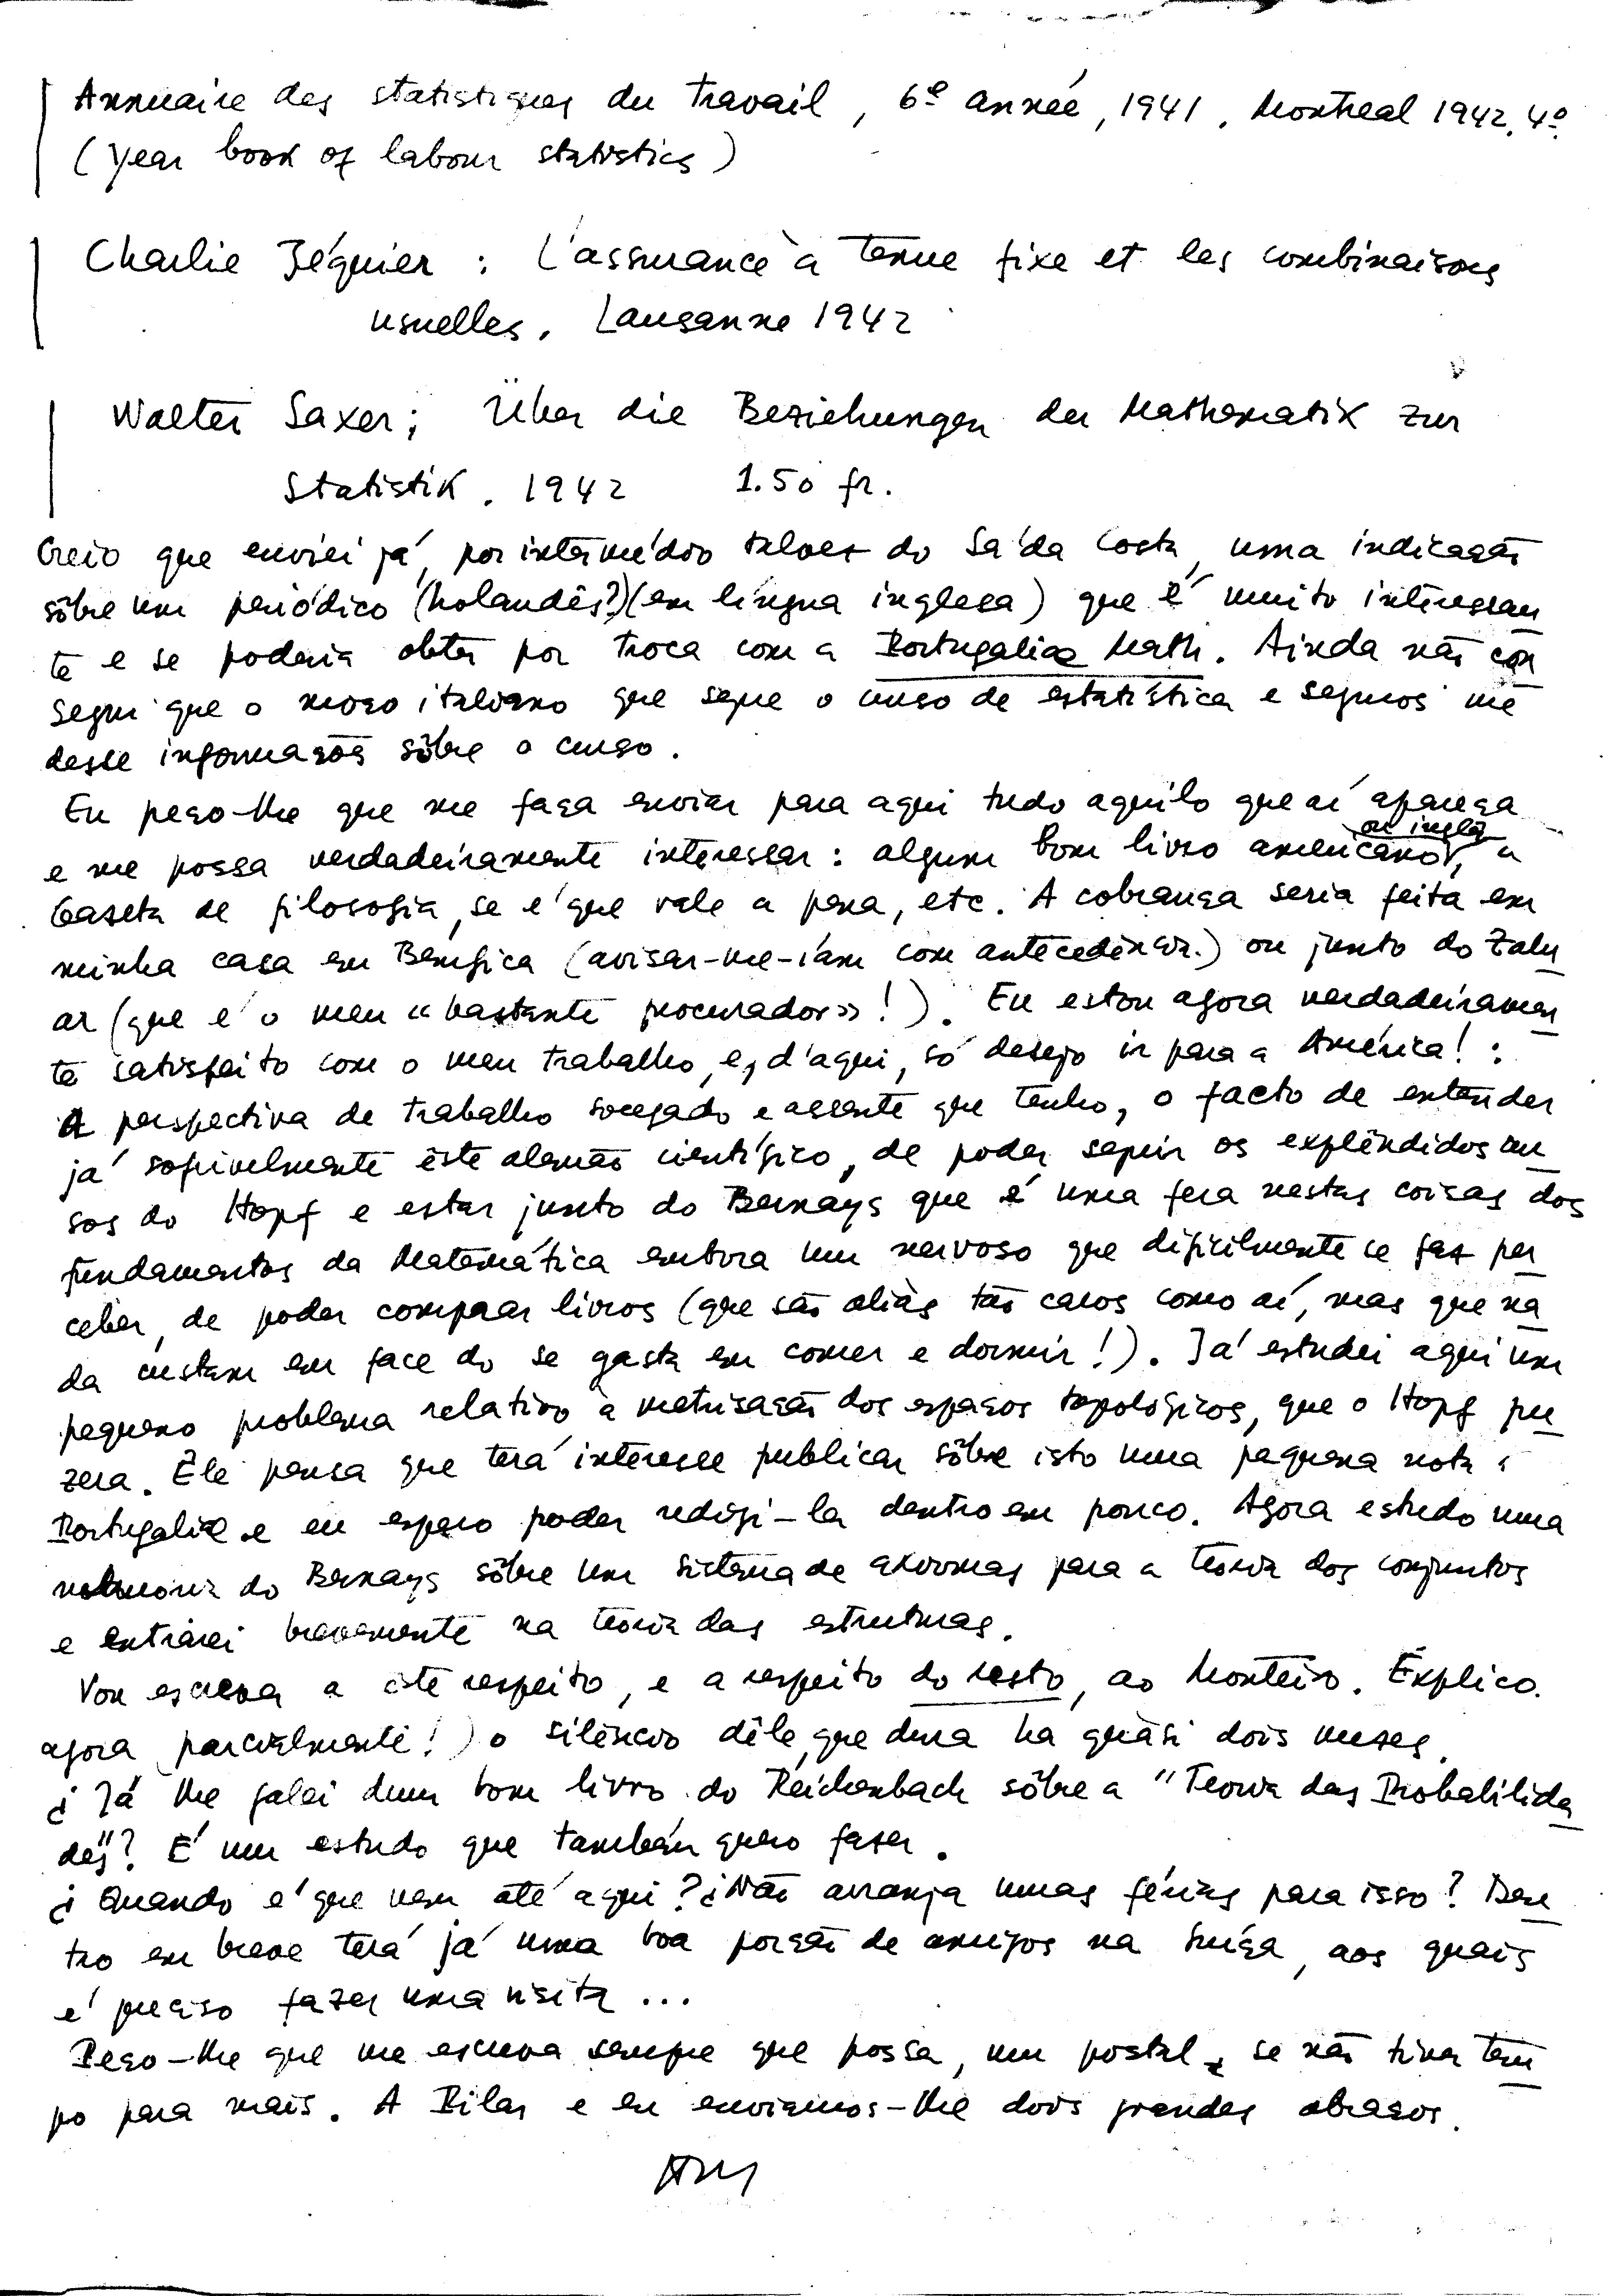 Annuaire des statistiques du travail, 6e année, 1941. Montreal 1942. 4º.
(Year book of labour statistics)
Charlie Jéquier : L'assurance à terme fixe et les combinaisons
usuelles. Lausanne 1942
Walter Saxer; Über die Beziehungen der Mathematik zur
Statistik. 1942 1.50 fr.
Creio que enviei já, por intermédio talvez do Sá da Costa, uma indicação
sôbre um periódico (holandês?)(em língua inglesa) que é muito interessan
te e se poderia obter por troca com a Portugaliae Math. Ainda não con
segui que o moço italiano que segue o curso de estatística e seguros me
desse informações sôbre o curso.
Eu peço-lhe que me faça enviar para aqui tudo aquilo que aí apareça
e me possa verdadeiramente interessar : algum bom livro americano ou inglês, a
Gazeta de filosofia, se é que vale a pena, etc. A cobrança seria feita em
minha casa em Bemfica (avisar-me-iam com antecedência.) ou junto do Zalu
ar (que é o meu «bastante procurador»!). Eu estou agora verdadeiramen
te satisfeito com o meu trabalho, e, d'aqui, só desejo ir para a América! :
A perspectiva de trabalho socegado e assente que tenho, o facto de entender
já sofrivelmente êste alemão científico, de poder seguir os explêndidos cur
sos do Hopf e estar junto do Bernays que é uma fera nestas coisas dos
fundamentos da Matemática embora um nervoso que dificilmente se faz per
ceber, de poder comprar livros (que são aliás tão caros como aí, mas que na
da custam em face do se gasta em comer e dormir!). Já estudei aqui um
pequeno problema relativo à metrisação dos espaços topológicos, que o Hopf pu
zera. Êle pensa que terá interesse publicar sôbre isto uma pequena nota
Portugaliae e eu espero poder redigi-la dentro em pouco. Agora estudo uma
memória do Bernays sôbre um sistema de axiomas para a teoria dos conjuntos
e entrarei brevemente na teoria das estruturas.
Vou escrever a êste respeito, e a respeito do resto, ao Monteiro. Explico
agora (parcialmente!) o silêncio dêle que dura ha quàsi dois meses.
¿ Já lhe falei dum bom livro do Reichenbach sôbre a "Teoria das Probabilida
des"? É um estudo que também quero fazer.
¿ Quando é que vem até aqui? ¿ Não arranja umas férias para isso? Den
tro em breve terá já uma boa porção de amigos na Suíça, aos quais
é preciso fazer uma visita ...
Peço-lhe que me escreva sempre que possa, um postal, se não tiver tem
po para mais. A Pilar e eu enviamos-lhe dois grandes abraços.